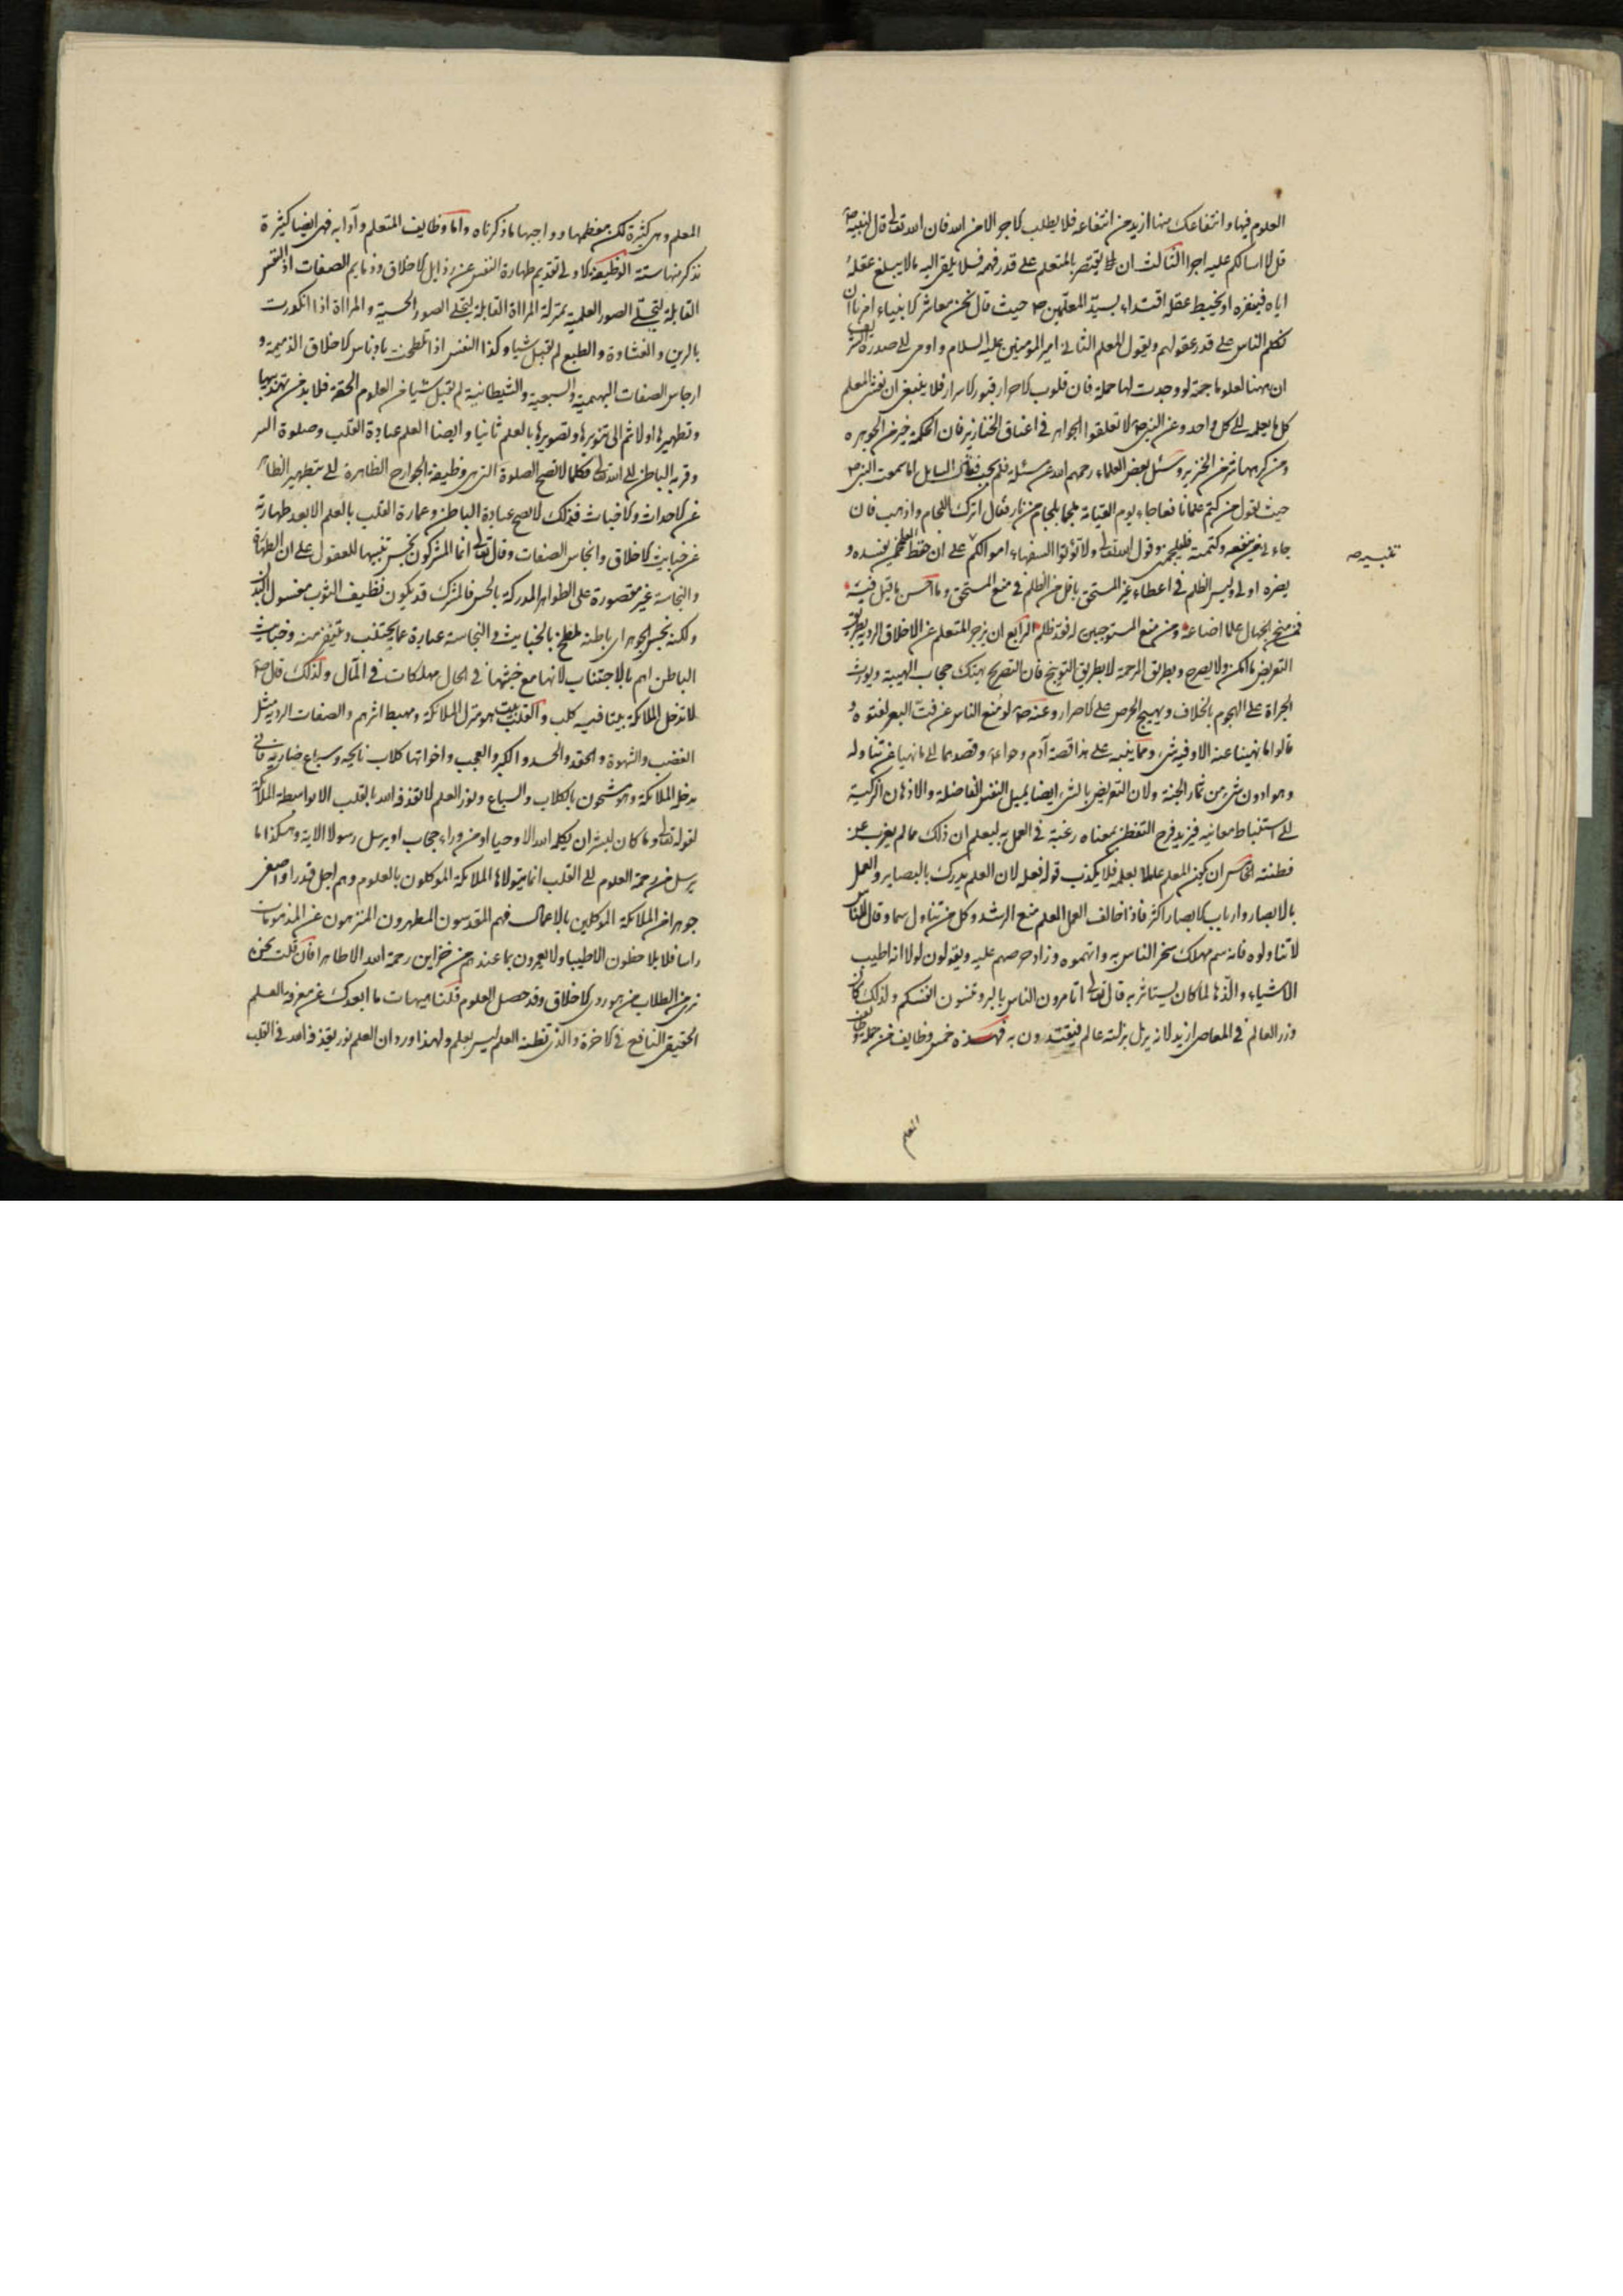 العلوم فيها وانتفاعك منها ازيد من انتفاعه فلا يطلب الاجر الا من الله فان الله تعالى قال لنبيه ص
قل لا اسالكم عليه اجرا الثالث ان يقتصر بالمتعلم على قدر فهمه فلا يلقى اليه ما لا يبلغ عقله
اياه فينفره او يخبط عقله اقتداء بسيد المعلمين ص حيث قال نحن معاشر الانبياء امرنا ان
نكلم الناس على قدر عقولهم ويقول المعلم الثاني امير المؤمنين عليه السلام واومى الى صدره الشريف
ان ههنا لعلوما جمة لو وجدت لها حملة فان قلوب الاحرار قبور الاسرار فلا ينبغي ان يفشى المعلم
كل ما يعلمه الى كل واحد وعن النبي ص لا تعلقوا الجواهر في اعناق الخنازير فان الحكمة خير من الجوهر
ومن كرهها شر من الخنزير وسئل بعض العلماء رحمهم الله عن مسئلة فلم يجب فقال السايل اما سمعت النبي ص
حيث يقول من كتم علما نافعا جاء يوم القيامة ملجما بلجام من نار فقال اترك اللجام واذهب فان
جاءني من ينفعه وكتمته فليلجمني وقول الله تعالى ولا تؤتوا السفهاء اموالكم على ان حفظ العلم ممن يفسده و
يضره اولى وليس الظلم في اعطاء غير المستحق باقل من الظلم في منع المستحق وما احسن ما قيل فيه
فمن منح الجهال علما اضاعه ومن منع المستوجبين له فقد ظلم الرابع ان يزجر المتعلم عن الاخلاق الردية بطريق
التعريض ما امكن ولا يصرح وبطريق الرحمة لا بطريق التوبيخ فان التصريح يهتك حجاب الهيبة ويورث
الجراة على الهجوم بالخلاف ويهيج الحرص على الاصرار وعنه ص لو منع الناس عن فت البعر لفتوه و
قالوا ما نهينا عنه الا وفيه شيء ومما ينبه على هذا قصة آدم وحواء وقصدهما الى ما نهيا عن تناوله
وهو ادون شيء من ثمار الجنة ولان التعريض بالشيء ايضا يميل النفس الفاضلة والاذهان الزكية
الى استنباط معانيه فيزيد فرح التفطن بمعناه رغبة في العمل به ليعلم ان ذلك مما لم يغرب عن
فطنته الخامس ان يكون المعلم عاملا بعلمه فلا يكذب قوله فعله لان العلم يدرك بالبصاير والعمل
بالابصار وارباب الابصار اكثر فاذا خالف العمل العلم منع الرشد وكل من تناول سما وقال للناس
لا تناولوه فانه سم مهلك سخر الناس به واتهموه وزاد حرصهم عليه ويقولون لولا انه اطيب
الاشياء والذها لما كان يستاثر به قال تعالى اتامرون الناس بالبر وتنسون انفسكم ولذلك كان
وزر العالم في المعاصي ازيد لانه يزل بزلته عالم فيقتدون به فهذه خمس وظايف من جملة وظايف
المعلم
تفسيره
المعلم وهي كثيرة لكن معظمها وواجبها ما ذكرناه واما وظايف المتعلم وآدابه فهي ايضا كثيرة
نذكر منها ستة الوظيفة الاولى تقديم طهارة النفس عن رذايل الاخلاق وذمايم الصفات اذ النفس
القابلة لتجلى الصور العلمية بمنزلة المراة القابلة لتجلى الصور الحسية والمراة اذا انكدرت
بالرين والغشاوة والطبع لم تقبل شيا وكذا النفس اذا تلطخت بادناس الاخلاق الذميمة و
ارجاس الصفات البهيمية والسبعية والشيطانية لم تقبل شيا من العلوم الحقة فلا بد من تهذيبها
وتطهيرها اولا ثم الى تنويرها وتصويرها بالعلم ثانيا وايضا العلم عبادة القلب وصلوة السر
وقربة الباطن الى الله تعالى فكما لا تصح الصلوة التي هي وظيفة الجوارح الظاهرة الا بتطهير الظاهر
عن الاحداث والاخباث فكذلك لا تصح عبادة الباطن وعمارة القلب بالعلم الا بعد طهارته
عن خبايث الاخلاق وانجاس الصفات وقال تعالى انما المشركون نجس تنبيها للعقول على ان الطهارة
والنجاسة غير مقصورة على الظواهر المدركة بالحس فالمشرك قد يكون نظيف الثوب مغسول البدن
ولكنه نجس الجوهر اى باطنه ملطخ بالخبايث والنجاسة عبارة عما يجتنب ويتنفر منه وخبايث
الباطن اهم بالاجتناب لانها مع خبثها في الحال مهلكات في المآل ولذلك قال ص
لا تدخل الملائكة بيتا فيه كلب والقلب بيت هو منزل الملائكة ومهبط اثرهم والصفات الردية مثل
الغضب والشهوة والحقد والحسد والكبر والعجب واخواتها كلاب نابحة وسباع ضارية فانى
يدخله الملائكة وهو مشحون بالكلاب والسباع ونور العلم لا يقذفه الله بالقلب الا بواسطة الملائكة
لقوله تعالى وما كان لبشر ان يكلمه الله الا وحيا او من وراء حجاب او يرسل رسولا الاية وهكذا ما
يرسل من رحمة العلوم الى القلب انما يتولاها الملائكة الموكلون بالعلوم وهم اجل قدرا واصفى
جوهرا من الملائكة الموكلين بالاعمال فهم المقدسون المطهرون المنزهون عن المذمومات
راسا فلا يلاحظون الا طيبا ولا يعمرون بما عندهم من خزاين رحمة الله الا طاهرا فان قلت نحن
نرى من الطلاب من هو ردي الاخلاق وقد حصل العلوم قلنا هيهات ما ابعدك عن معرفة العلم
الحقيقي النافع في الاخرة والذي تظنه العلم ليس بعلم ولهذا ورد ان العلم نور يقذفه الله في القلب